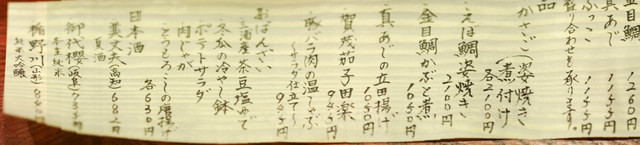 金目鯛 1260円
真あじ 1155円
ぶっこ 1155円
盛り合わせを承ります。
品
かさご(姿焼き 煮付け 各2100円
こえほ鯛姿焼き 2100円
金目鯛かぶと煮 1050円
真あじの立田揚げ 1050円
賀茂茄子田楽 945円
豚バラ肉の温しゃぶ 〜サラダ仕立て〜 945円
おばんざい
三浦産茶豆塩ゆで
冬瓜の冷やし鉢
ポテトサラダ
肉じゃが
とうもろこしの唐揚げ
各630円
日本酒
美丈夫(高知) 夏酒
御代櫻(岐阜) 純米 735円
楯野川(山形) 純米大吟醸 840円